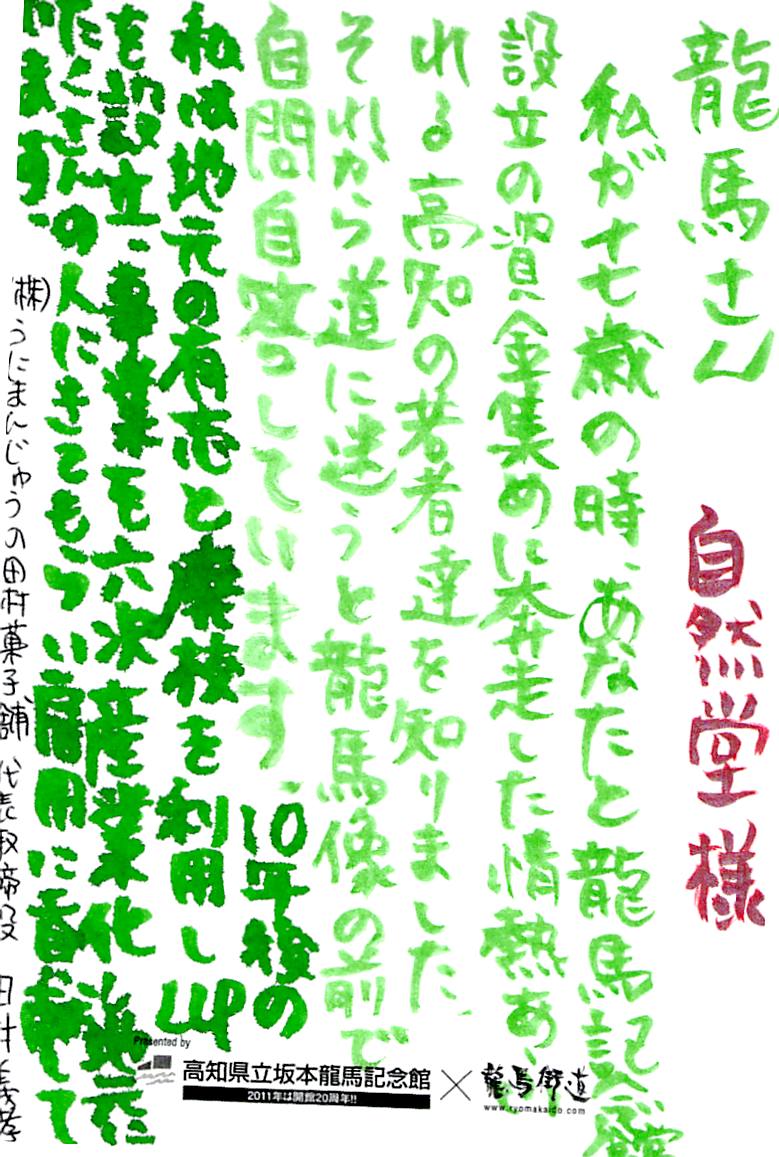 龍馬さん　自然堂様
私が十七歳の時、あなたと龍馬記念館
設立の資金集めに奔走した情熱あ
れる高知の若者達を知りました。
それから道に迷うと龍馬像の前で
自問自答しています。10年後の
私は地元の有志と廃校を利用しLLP
を設立、事業も六次産業化 地元に
たくさんの人にきてもらい雇用に奮
ます。
(株)うにまんじゅうの田村菓子舗 代表取締役
Presented by
高知県立坂本龍馬記念館 × 龍馬街道
2011年は開館20周年!!
www.ryomakaido.com